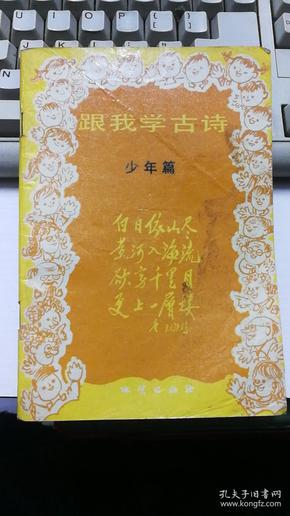 跟我学古诗
少年篇
白日依山尽
黄河入海流
欲穷千里目
更上一层楼
地质出版社
孔夫子旧书网